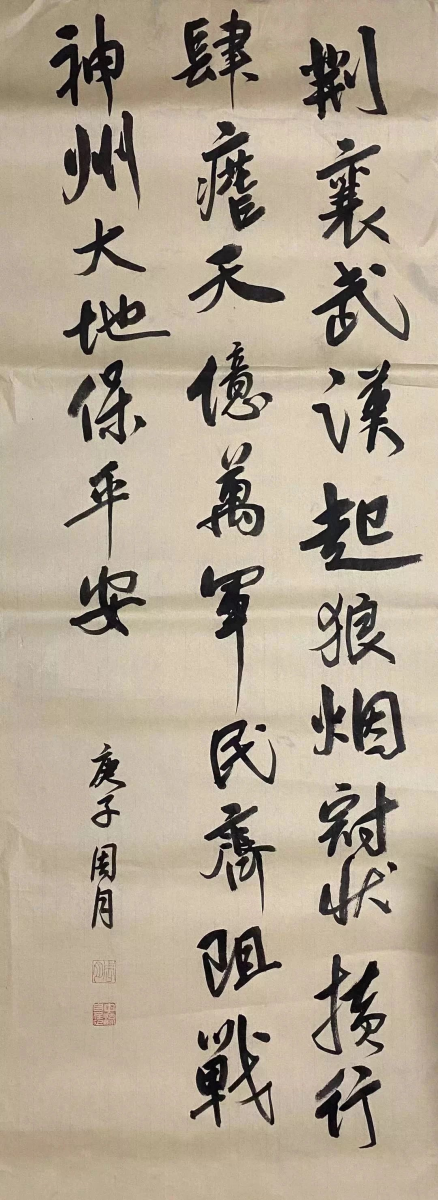 荆襄武漢起狼烟冠状横行
肆瘴天億萬軍民齊阻戰
神州大地保平安
庚子周月